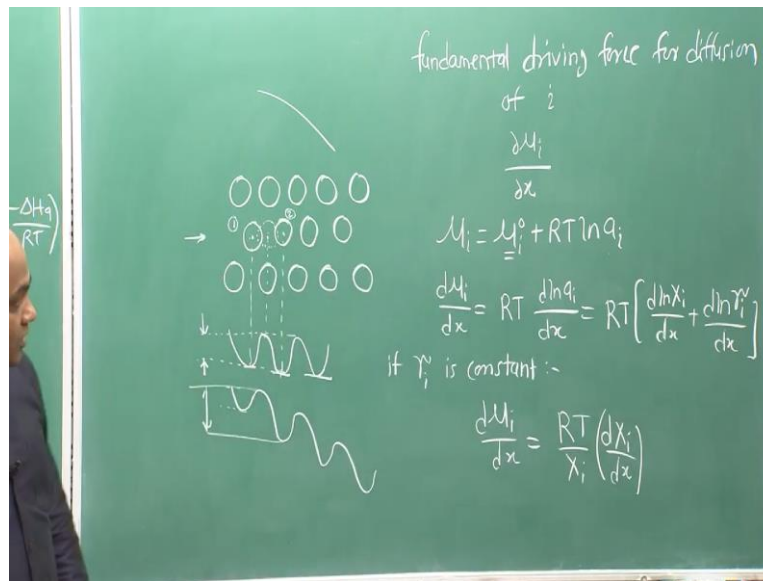 fundamental driving force for diffusion
of i
∂μi
∂x
-ΔHa
RT )
① ②
μi = μi° + RT ln ai
dμi/dx = RT dlnai/dx = RT [ dlnXi/dx + dlnγi/dx ]
if γi is constant :-
dμi/dx = RT/Xi ( dXi/dx )